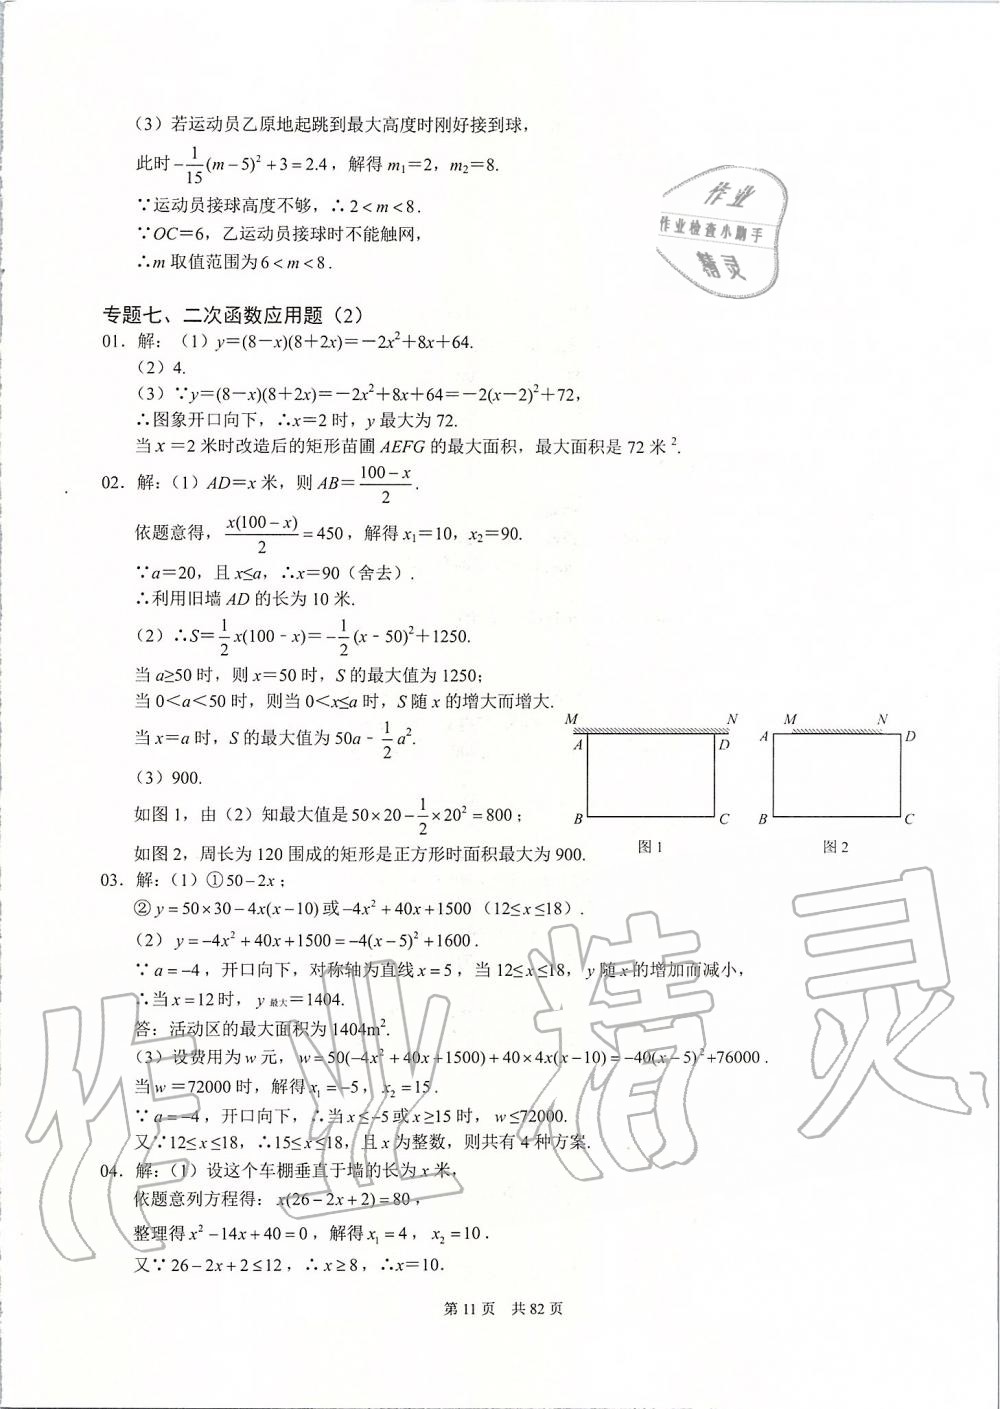 （3）若运动员乙原地起跳到最大高度时刚好接到球，
此时 −1/15(m−5)²+3=2.4，解得 m₁=2，m₂=8.
∵运动员接球高度不够，∴2<m<8.
∵OC=6，乙运动员接球时不能触网，
∴m 取值范围为 6<m<8.
作业
作业检查小助手
精灵
专题七、二次函数应用题（2）
01．解：（1）y＝(8－x)(8＋2x)＝－2x²＋8x＋64.
（2）4.
（3）∵y＝(8－x)(8＋2x)＝－2x²＋8x＋64＝－2(x－2)²＋72，
∴图象开口向下，∴x＝2 时，y 最大为 72.
当 x＝2 米时改造后的矩形苗圃 AEFG 的最大面积，最大面积是 72 米².
02．解：（1）AD＝x 米，则 AB＝(100−x)/2.
依题意得，x(100−x)/2=450，解得 x₁＝10，x₂＝90.
∵a＝20，且 x≤a，∴x＝90（舍去）.
∴利用旧墙 AD 的长为 10 米.
（2）∴S＝1/2 x(100﹣x)＝﹣1/2 (x﹣50)²＋1250.
当 a≥50 时，则 x＝50 时，S 的最大值为 1250；
当 0＜a＜50 时，则当 0＜x≤a 时，S 随 x 的增大而增大.
当 x＝a 时，S 的最大值为 50a﹣1/2 a².
（3）900.
如图 1，由（2）知最大值是 50×20−1/2×20²=800；
如图 2，周长为 120 围成的矩形是正方形时面积最大为 900.
M N
A D
B C
图 1
M N
A D
B C
图 2
03．解：（1）①50−2x；
②y=50×30−4x(x−10)或−4x²+40x+1500（12≤x≤18）.
（2）y=−4x²+40x+1500=−4(x−5)²+1600.
∵a=−4，开口向下，对称轴为直线 x=5，当 12≤x≤18，y 随 x 的增加而减小，
∴当 x=12 时，y 最大＝1404.
答：活动区的最大面积为 1404m².
（3）设费用为 w 元，w=50(−4x²+40x+1500)+40×4x(x−10)=−40(x−5)²+76000.
当 w=72000 时，解得 x₁=−5，x₂=15.
∵a=−4，开口向下，∴当 x≤−5 或 x≥15 时，w≤72000.
又∵12≤x≤18，∴15≤x≤18，且 x 为整数，则共有 4 种方案.
04．解：（1）设这个车棚垂直于墙的长为 x 米，
依题意列方程得：x(26−2x+2)=80，
整理得 x²−14x+40=0，解得 x₁=4，x₂=10.
又∵26−2x+2≤12，∴x≥8，∴x＝10.
第 11 页 共 82 页
作业精灵